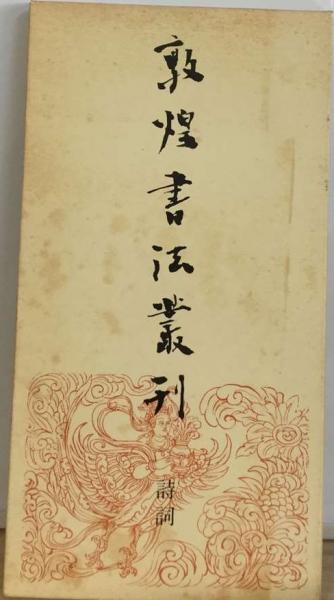 敦煌書法叢刊
詩詞